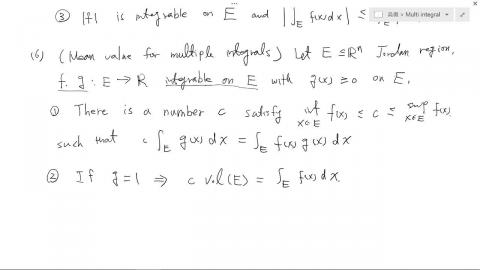 ③ |f| is integrable on E and |∫_E f(x)dx| ≤
高微 > Multi integral
(6) (Mean value for multiple integrals) Let E ⊆ Rⁿ Jordan region,
f, g : E → R integrable on E with g(x) ≥ 0 on E,
① There is a number c satisfy inf_{x∈E} f(x) ≤ c ≤ sup_{x∈E} f(x)
such that c ∫_E g(x) dx = ∫_E f(x) g(x) dx
② If g = 1 ⇒ c vol(E) = ∫_E f(x) dx.